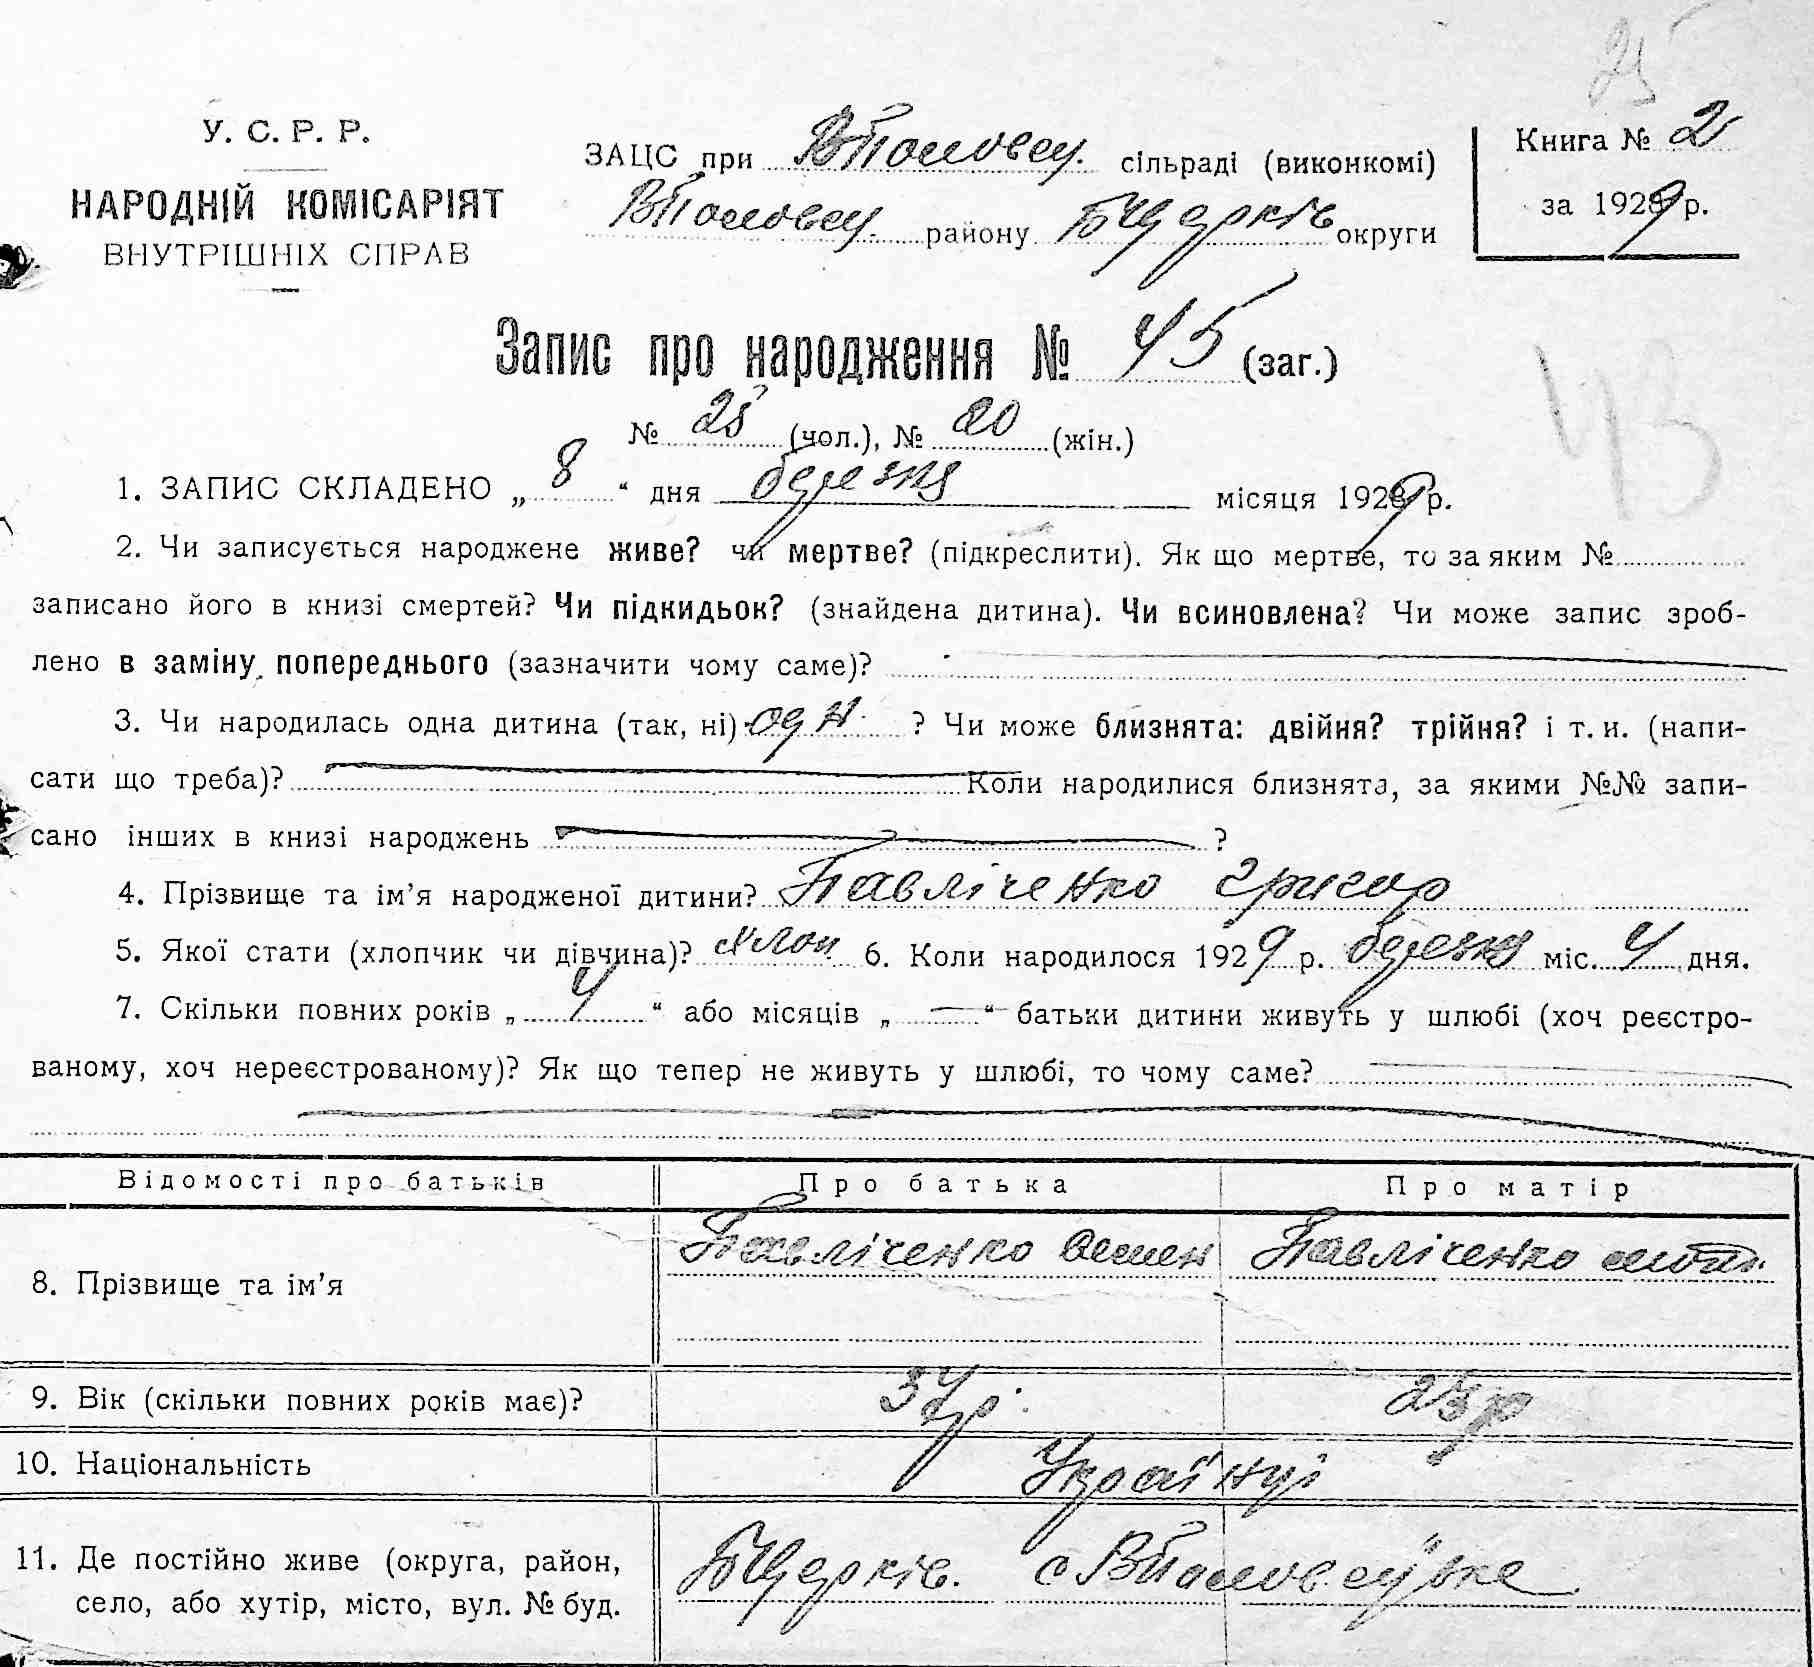 25
У. С. Р. Р.
НАРОДНІЙ КОМІСАРІЯТ
ВНУТРІШНІХ СПРАВ
ЗАЦС при ВПоловец. сільраді (виконкомі)
ВПоловец. району БЦерків округи
Книга № 2
за 1929 р.
Запис про народження № 45 (заг.)
№ 25 (чол.), № 20 (жін.)
43
1. ЗАПИС СКЛАДЕНО „ 8 “ дня березня місяця 1929 р.
2. Чи записується народжене живе? чи мертве? (підкреслити). Як що мертве, то за яким №
записано його в книзі смертей? Чи підкидьок? (знайдена дитина). Чи всиновлена? Чи може запис зроб-
лено в заміну попереднього (зазначити чому саме)?
3. Чи народилась одна дитина (так, ні) одн ? Чи може близнята: двійня? трійня? і т. и. (напи-
сати що треба)? Коли народилися близнята, за якими №№ запи-
сано інших в книзі народжень ?
4. Прізвище та ім’я народженої дитини? Павліченко Григор
5. Якої стати (хлопчик чи дівчина)? хлоп. 6. Коли народилося 1929 р. березня міс. 4 дня.
7. Скільки повних років „ 4 “ або місяців „ — “ батьки дитини живуть у шлюбі (хоч реєстро-
ваному, хоч нереєстрованому)? Як що тепер не живуть у шлюбі, то чому саме?
Відомості про батьків Про батька Про матір
8. Прізвище та ім’я Павліченко Семен Павліченко
9. Вік (скільки повних років має)? 37 р. 23 р
10. Національність Українці
11. Де постійно живе (округа, район, БЦерків. с ВПоловецьке
село, або хутір, місто, вул. № буд.